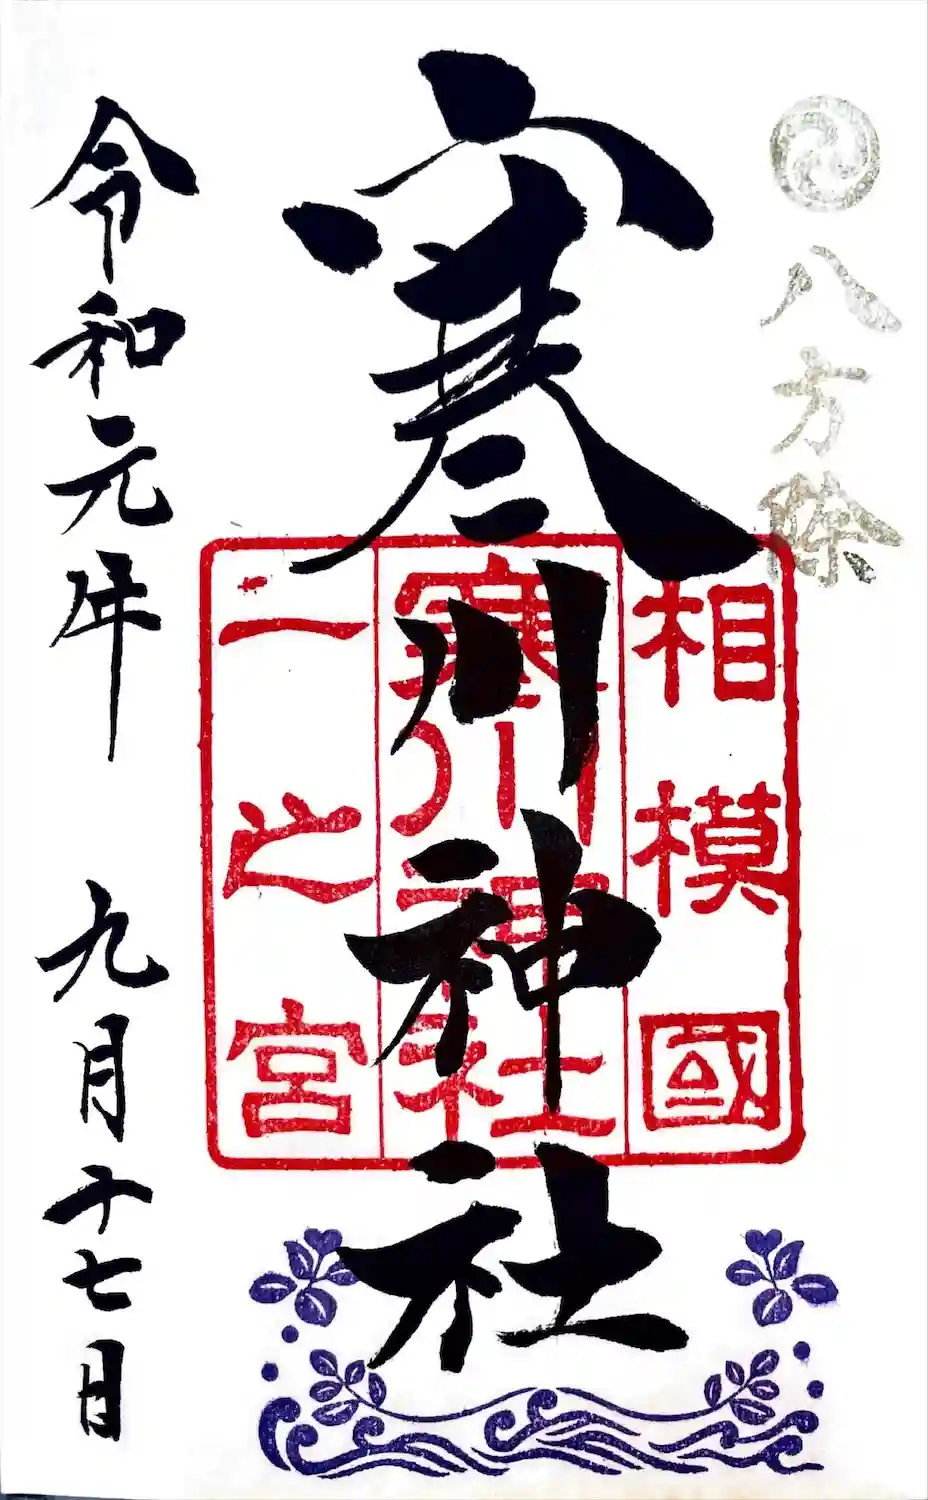 八方除
寒川神社
相模國
寒川神社
一之宮
令和元年 九月十七日